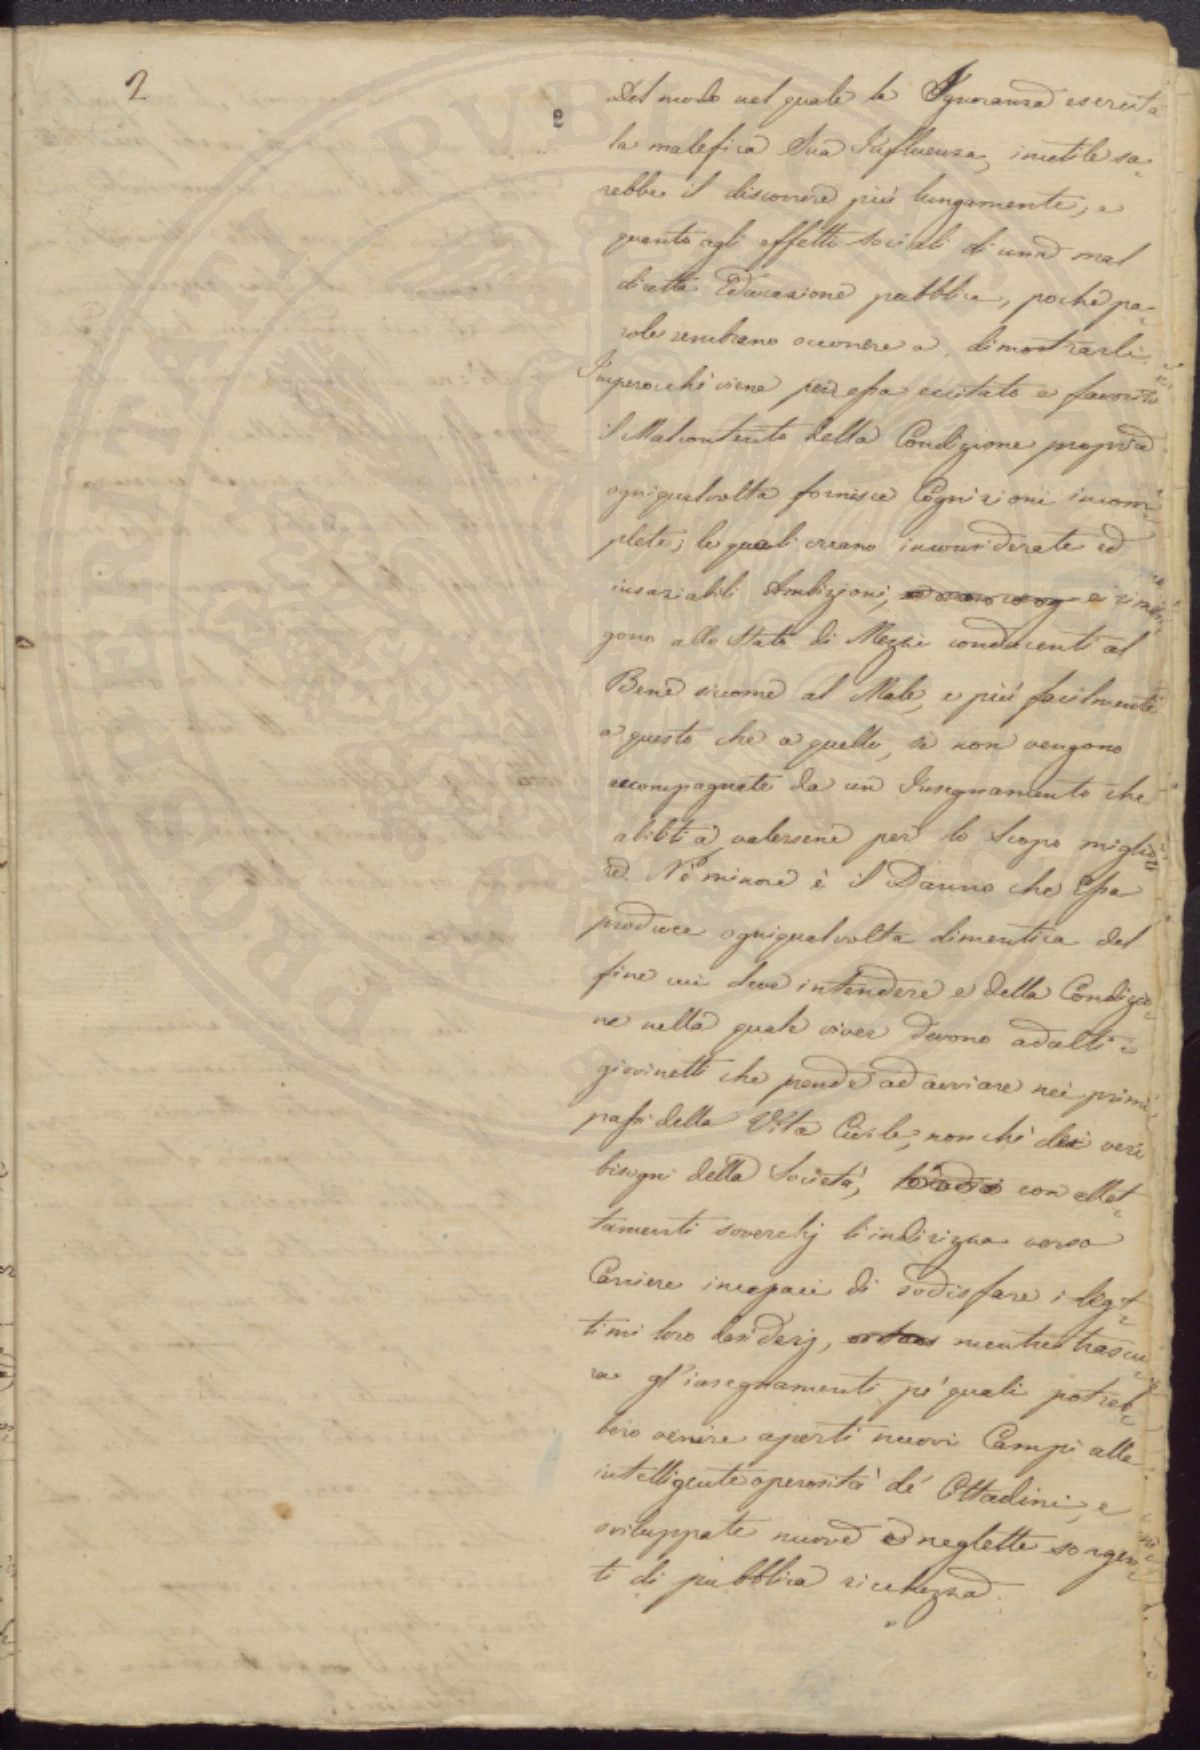 2
Del modo nel quale la Ignoranza esercita
la malefica Sua Influenza, inutile sa-
rebbe il discorrere più lungamente, e
quanto agli effetti sociali di una mal
diretta Educazione pubblica, poche pa-
role sembrano occorrere a dimostrarli.
Imperocchè viene per essa eccitato e favorito
il Malcontento della Condizione propria
ogniqualvolta fornisce Cognizioni incom-
plete; le quali creano inconsiderate ed
insaziabili Ambizioni, e
gono allo Stato di Mezzi conducenti al
Bene siccome al Male, e più facilmente
a questo che a quello, se non vengono
accompagnate da un Insegnamento che
abiliti a valersene per lo Scopo miglio-
re. Nè minore è il Danno che Essa
produce ogniqualvolta dimentica del
fine cui deve intendere e della Condizio-
ne nella quale viver devono adulti i
giovinetti che prende ad avviare nei primi
passi della Vita Civile, non chè dei veri
bisogni della Società, con allet-
tamenti soverchj li indirizza verso
Carriere incapaci di sodisfare i legit-
timi loro desiderj, mentre trascu-
ra gl'insegnamenti pe' quali potreb-
bero venire aperti nuovi Campi alla
intelligente operosità de' Cittadini, e
sviluppate nuove ed neglette sorgen-
ti di pubblica ricchezza.